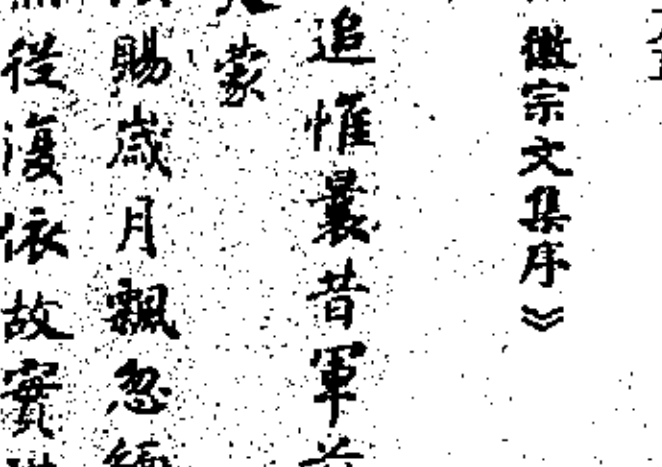 徽宗文集序》
追惟曩昔軍
蒙
賜歲月飄忽
從復依故實